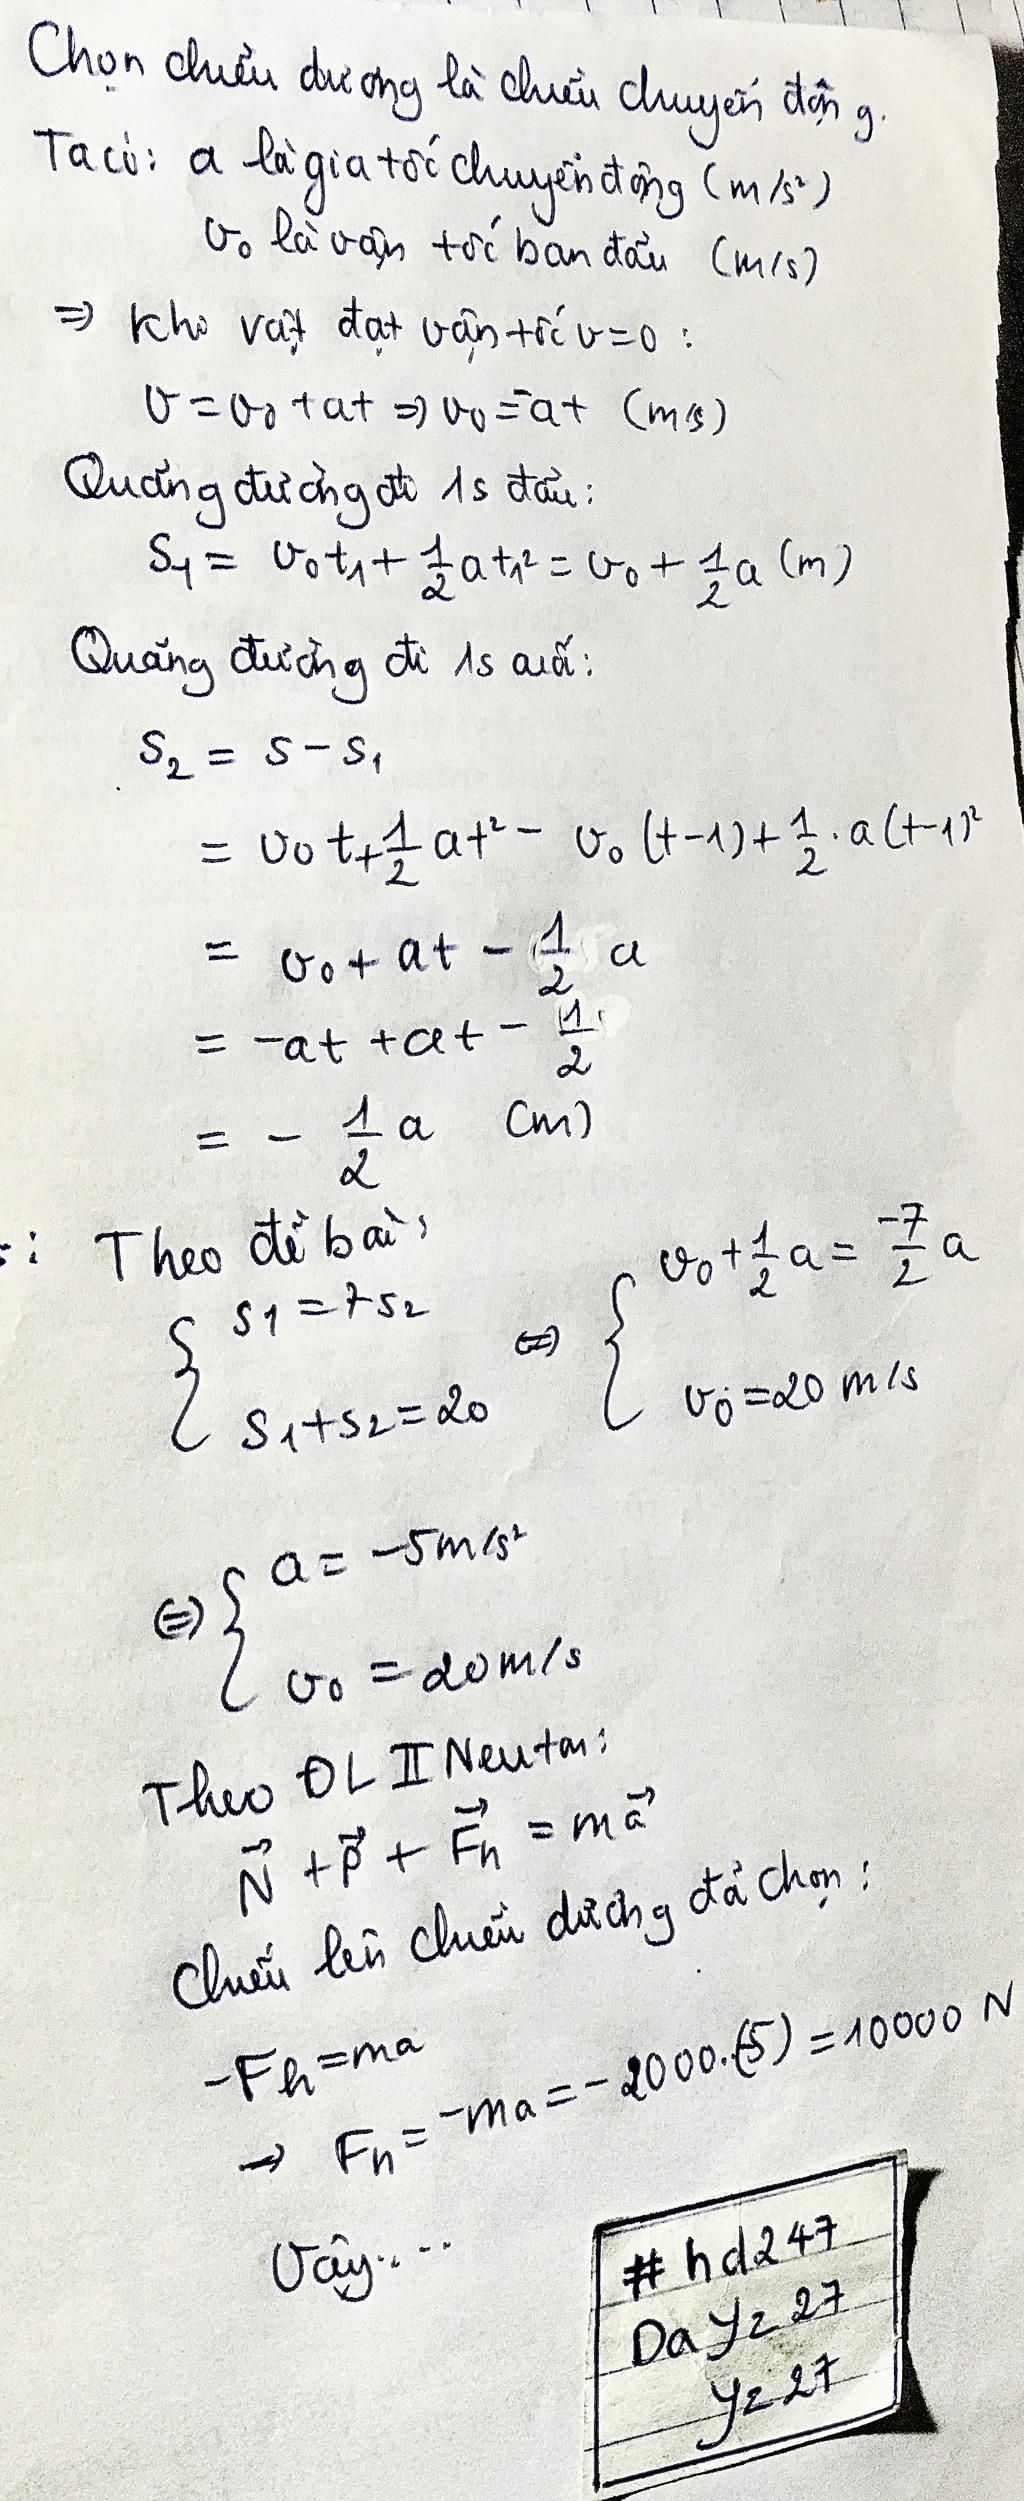 Chọn chiều dương là chiều chuyển động.
Ta có: a là gia tốc chuyển động (m/s²)
v₀ là vận tốc ban đầu (m/s)
⇒ Khi vật đạt vận tốc v=0 :
v = v₀ + at ⇒ v₀ = -at (m/s)
Quãng đường đi 1s đầu:
S₁ = v₀t₁ + 1/2 at₁² = v₀ + 1/2 a (m)
Quãng đường đi 1s cuối:
S₂ = S - S₁
= v₀t + 1/2 at² - v₀(t-1) + 1/2 . a(t-1)²
= v₀ + at - 1/2 a
= -at + at - 1/2
= - 1/2 a (m)
: Theo đề bài:
{ S₁ = 7S₂ ; S₁ + S₂ = 20 ⇔ { v₀ + 1/2 a = -7/2 a ; v₀ = 20 m/s
⇔ { a = -5 m/s² ; v₀ = 20 m/s
Theo ĐL II Neuton:
N⃗ + P⃗ + F⃗h = ma⃗
Chiếu lên chiều dương đã chọn:
-Fh = ma
→ Fh = -ma = -2000.(-5) = 10000 N
Vậy....
# hd247
Dayz27
yz27